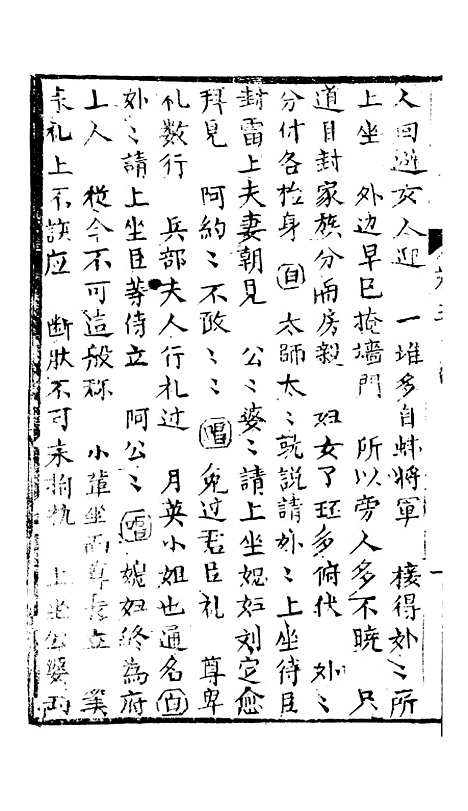 人回避女人迎　一堆多自蚌將軍　接得妙〻所
上坐　外边早已掩墻門　所以旁人多不曉　只
道自封家族分両房親　妇女了珏多俯代　妙〻
分付各抬身　白　太師太〻就説請妙〻上坐待臣
封雷上夫妻朝見　公〻婆〻請上坐媳妇刘定愈
拜見　阿約〻不敢〻〻　唱　免过君臣礼　尊卑
礼数行　兵部夫人行礼过　月英小姐也通名　白
妙〻請上坐臣等侍立　阿公〻　唱　媳妇終為府
上人　從今不可這般称　小輩坐　尊長立
礼上不該应　断狀不可来拘执　上坐公婆両